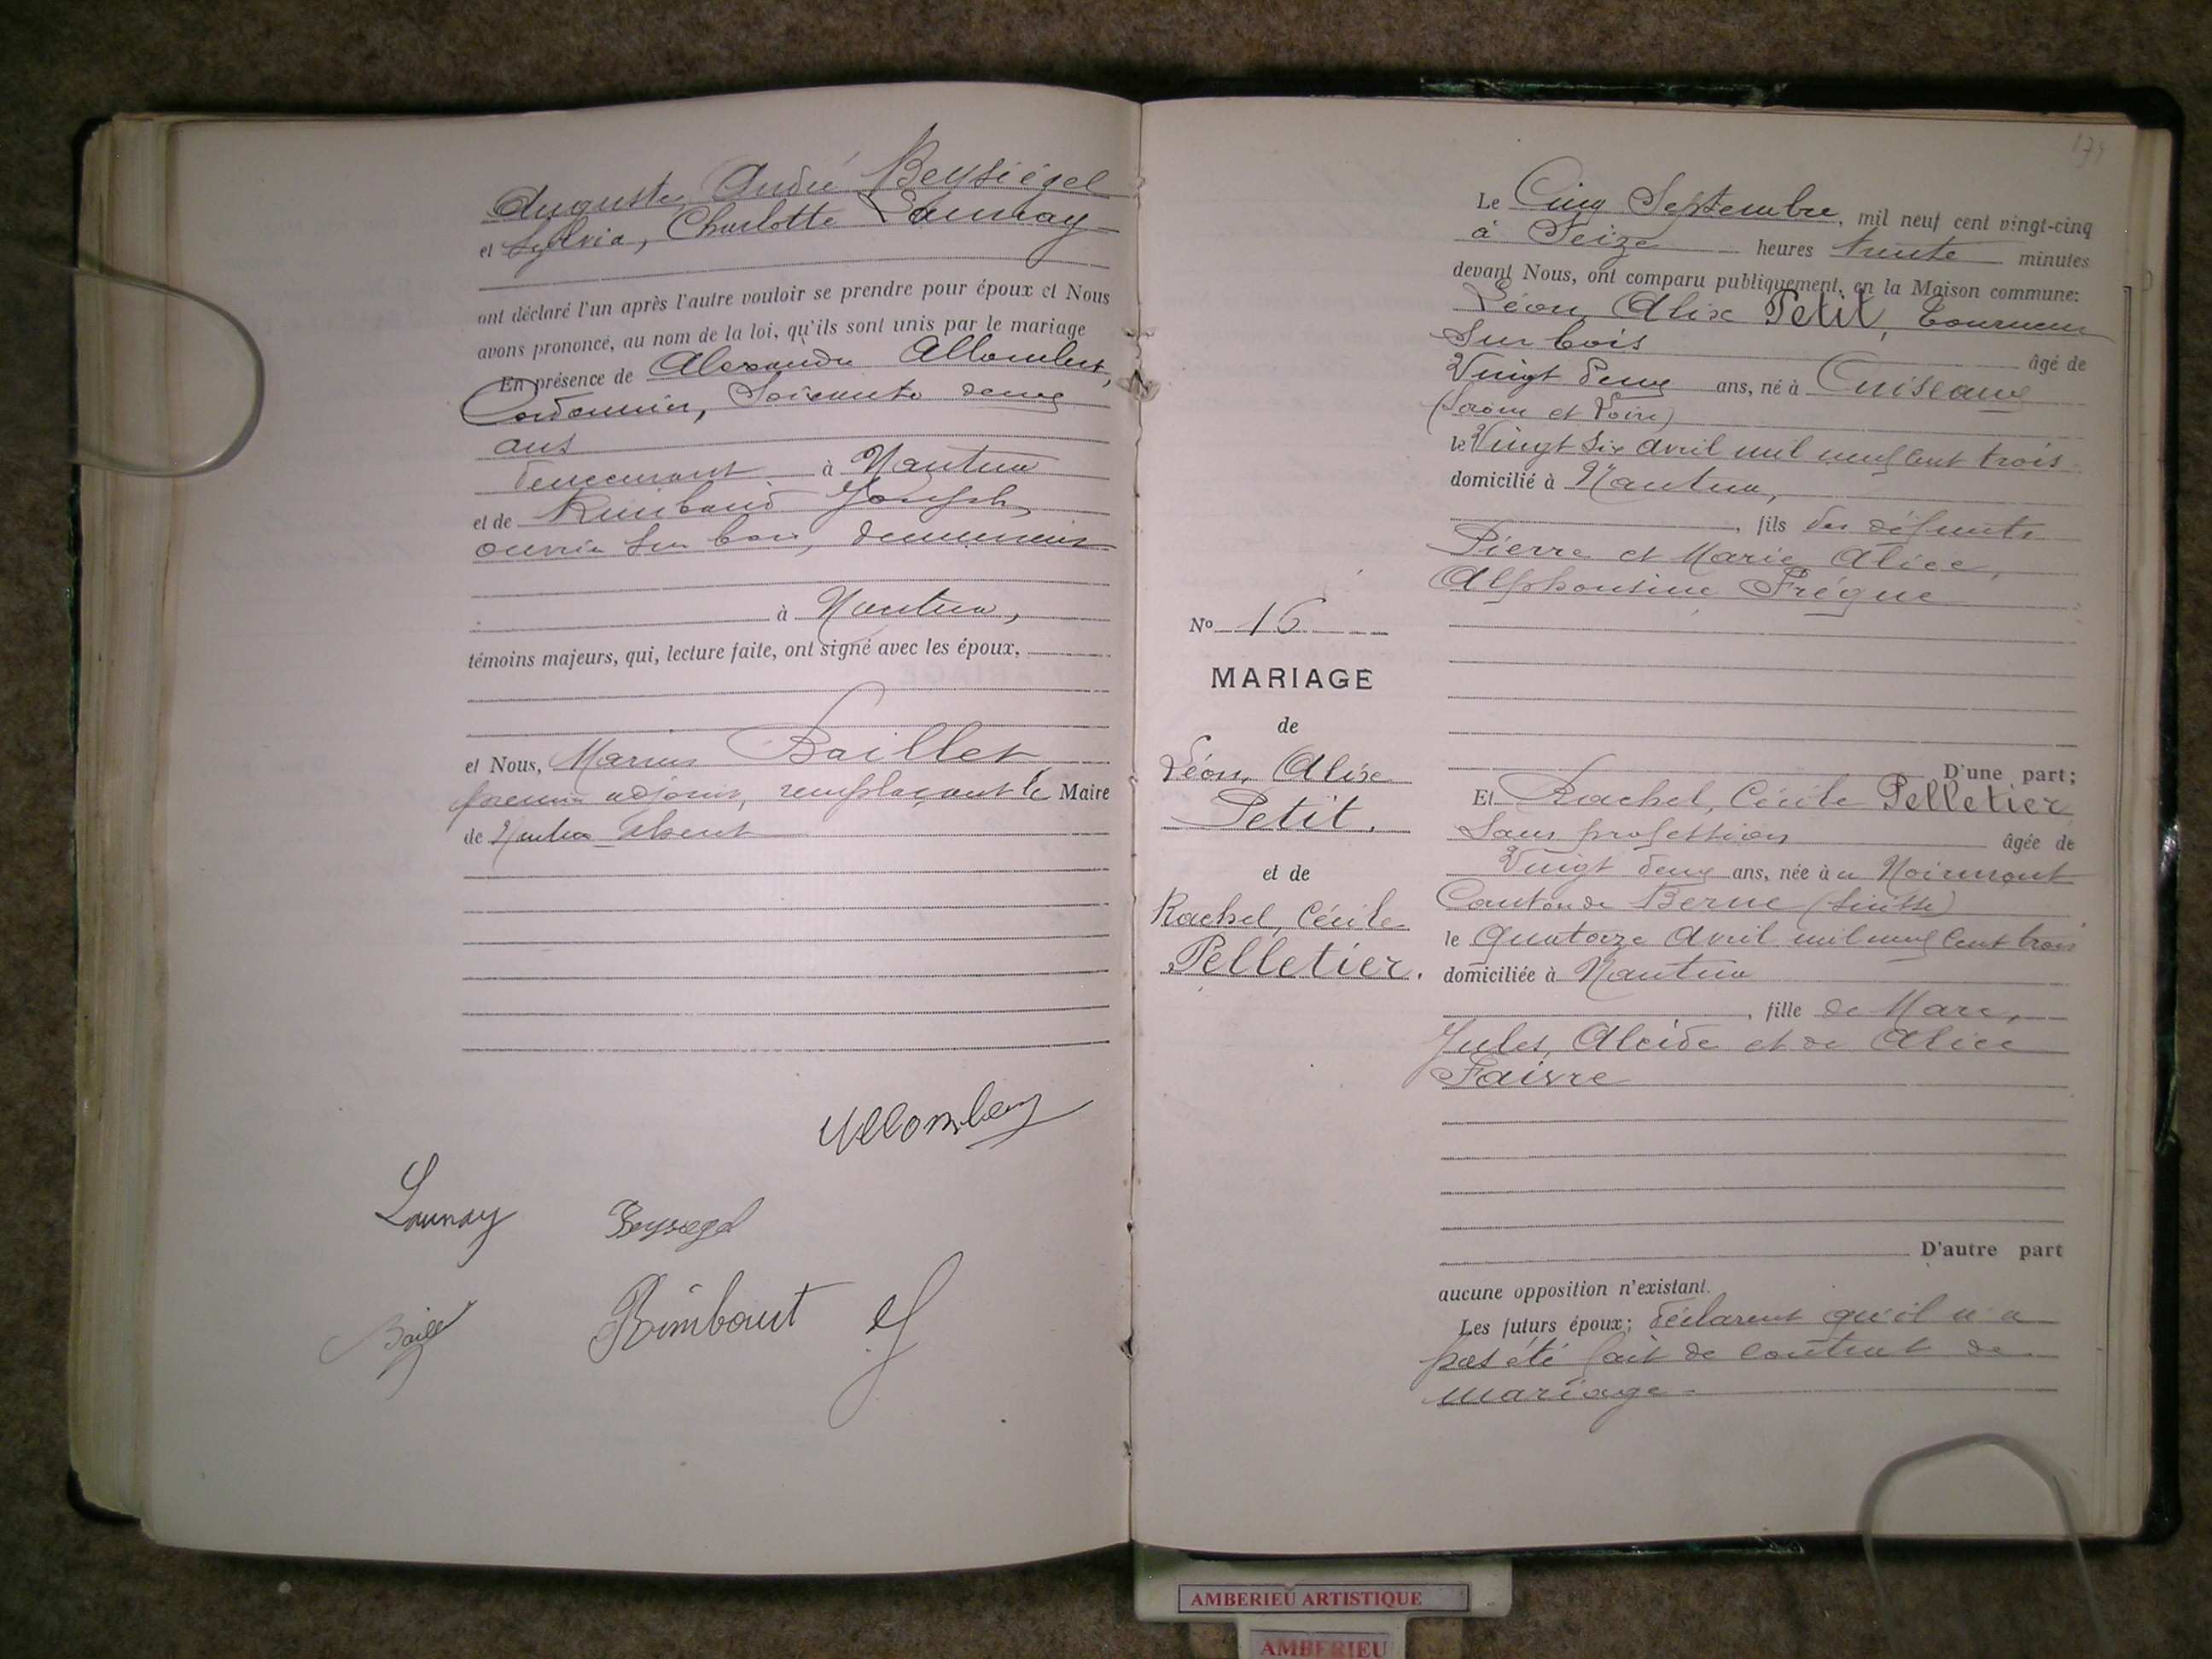 Auguste, André Beysiégel
et Sylvia, Charlotte Launay
ont déclaré l'un après l'autre vouloir se prendre pour époux et Nous
avons prononcé, au nom de la loi, qu'ils sont unis par le mariage
En présence de Alexandre Allombert,
Cordonnier, Soixante deux
ans
demeurant à Nantua
et de Rimbaud Joseph,
ouvrier sur bois, demeurant
à Nantua,
témoins majeurs, qui, lecture faite, ont signé avec les époux.
et Nous, Marius Baillet
premier adjoint, remplaçant le Maire
de Nantua absent
Allombert
Launay Beysiegel
Rimbaut
173
Le Cinq Septembre, mil neuf cent vingt-cinq
à Seize heures trente minutes
devant Nous, ont comparu publiquement, en la Maison commune:
Léon, Alix Petit, tourneur
sur bois âgé de
Vingt deux ans, né à Cuiseaux
(Saône et Loire)
le Vingt six avril mil neuf cent trois
domicilié à Nantua,
, fils des défunts
Pierre et Marie, Alice,
Alphonsine Frégue
D'une part;
Et Rachel, Cécile Pelletier
Sans profession âgée de
Vingt deux ans, née à Noirmont
Canton de Berne (Suisse)
le quatorze avril mil neuf cent trois
domiciliée à Nantua
, fille de Marc,
Jules, Alcide et de Alice
Faivre
D'autre part
aucune opposition n'existant.
Les futurs époux; déclarent qu'il n'a
pas été fait de contrat de
mariage
N° 16
MARIAGE
de
Léon, Alix
Petit.
et de
Rachel, Cécile
Pelletier.
AMBERIEU ARTISTIQUE
AMBERIEU